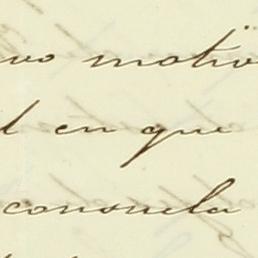 vo motivo
en que
consuela